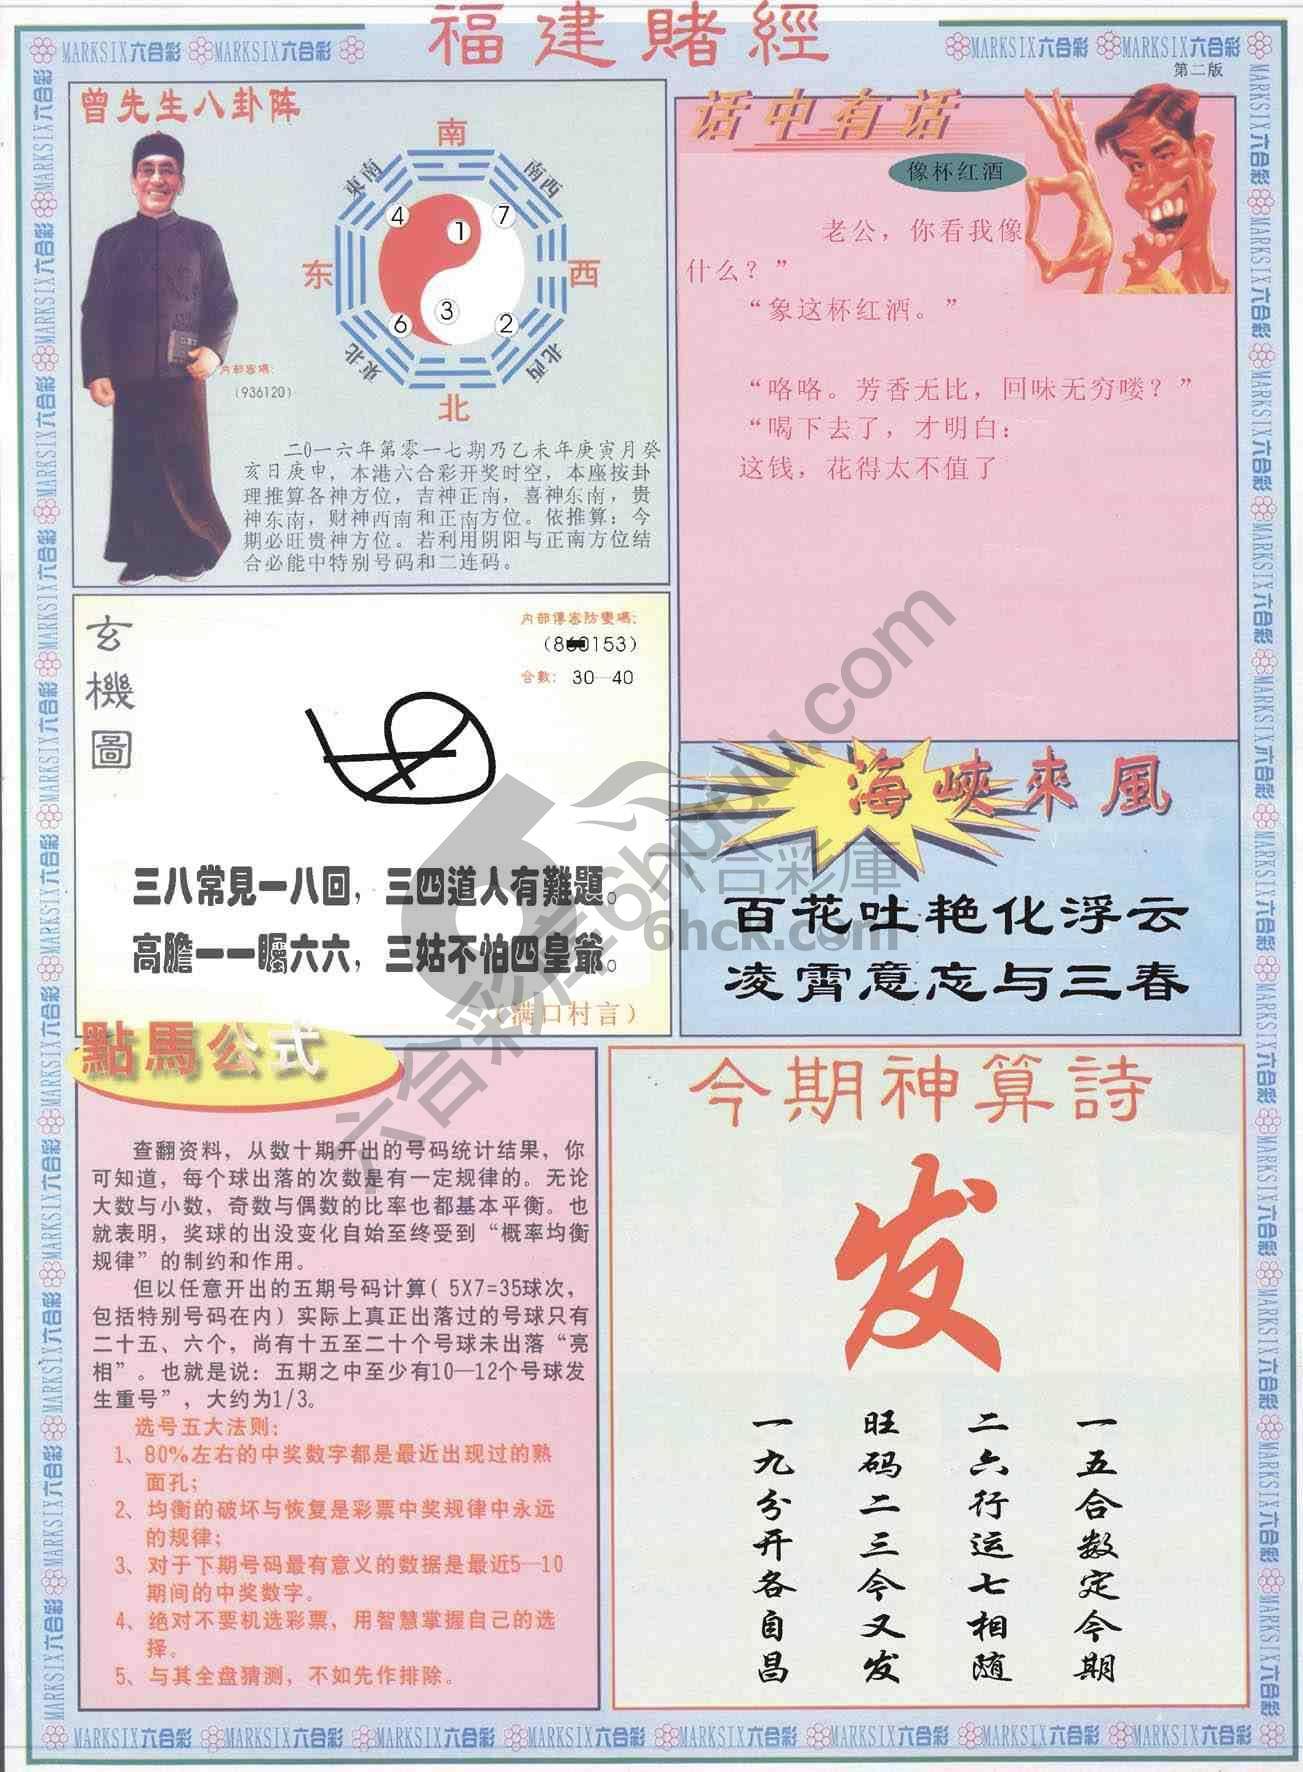 福建賭經
MARKSIX六合彩 MARKSIX六合彩
MARKSIX六合彩 MARKSIX六合彩
第二版
曾先生八卦阵
南
東南
南西
4
7
1
东
西
3
6
2
東北
北西
北
内部密碼:
(936120)
二0一六年第零一七期乃乙未年庚寅月癸
亥日庚申，本港六合彩开奖时空，本座按卦
理推算各神方位，吉神正南，喜神东南，贵
神东南，财神西南和正南方位。依推算：今
期必旺贵神方位。若利用阴阳与正南方位结
合必能中特别号码和二连码。
话中有话
像杯红酒
老公，你看我像
什么？”
“象这杯红酒。”
“咯咯。芳香无比，回味无穷喽？”
“喝下去了，才明白：
这钱，花得太不值了
玄機圖
内部傳密防變碼:
0153)
合數: 30—40
三八常見一八回，三四道人有難題。
高膽一一矚六六，三姑不怕四皇爺。
(满口村言)
海峽來風
百花吐艳化浮云
凌霄意忘与三春
點馬公式
查翻资料，从数十期开出的号码统计结果，你
可知道，每个球出落的次数是有一定规律的。无论
大数与小数，奇数与偶数的比率也都基本平衡。也
就表明，奖球的出没变化自始至终受到“概率均衡
规律”的制约和作用。
但以任意开出的五期号码计算( 5X7=35球次，
包括特别号码在内) 实际上真正出落过的号球只有
二十五、六个，尚有十五至二十个号球未出落“亮
相”。也就是说：五期之中至少有10—12个号球发
生重号”，大约为1/3。
选号五大法则：
1、80%左右的中奖数字都是最近出现过的熟
面孔；
2、均衡的破坏与恢复是彩票中奖规律中永远
的规律；
3、对于下期号码最有意义的数据是最近5—10
期间的中奖数字。
4、绝对不要机选彩票，用智慧掌握自己的选
择。
5、与其全盘猜测，不如先作排除。
今期神算詩
发
一五合数定今期
二六行运七相随
旺码二三今又发
一九分开各自昌
MARKSIX六合彩 MARKSIX六合彩 MARKSIX六合彩 MARKSIX六合彩 MARKSIX六合彩 MARKSIX六合彩 MARKSIX六合彩 MARKSIX六合彩
六合彩库
六合彩庫
6hck.com